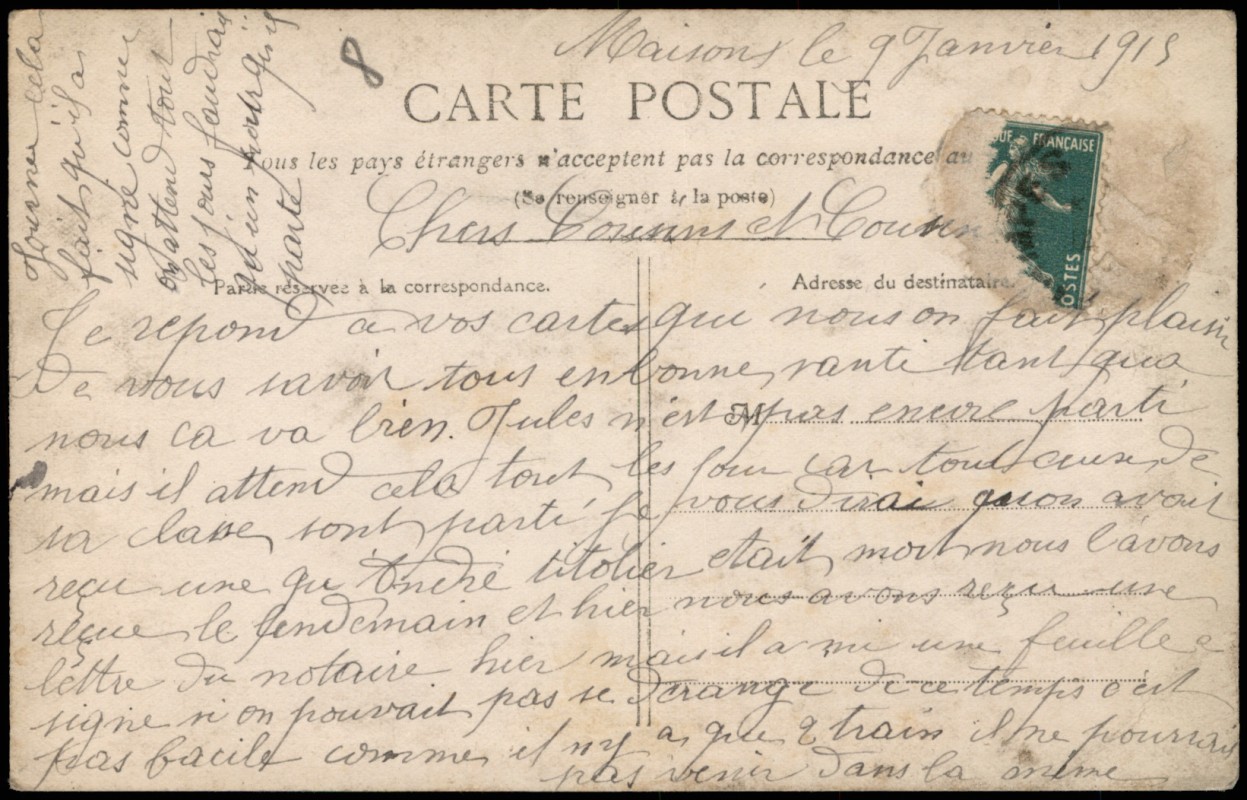 Maisons le 9 Janvier 1915
8
CARTE POSTALE
Tous les pays étrangers n'acceptent pas la correspondance au
(Se renseigner à la poste)
FRANÇAISE
POSTES
Chers Cousins et Cousin
Partie réservée à la correspondance.
Adresse du destinataire.
Je repond a vos cartes qui nous on fait plaisir
De vous savoir tous en bonne santé tant qua
nous ca va bien. Jules n'est pas encore parti
M
mais il attend cela tout les jour car tous ceux de
sa classe sont parti Je vous dirai quon avait
reçu une qu André titolier etait mort nous l'avons
reçue le lendemain et hier nous avons reçu une
lettre du notaire hier mais il a mi une feuille a
signe si on pouvait pas se derange de ce temps c'est
pas facile comme il ny a que 2 train il ne pourrais
pas venir dans la meme
Journee cela
fait qu'il a
signe comme
on attend tout
les jours faudrait
qu'un jour qu'il
parte